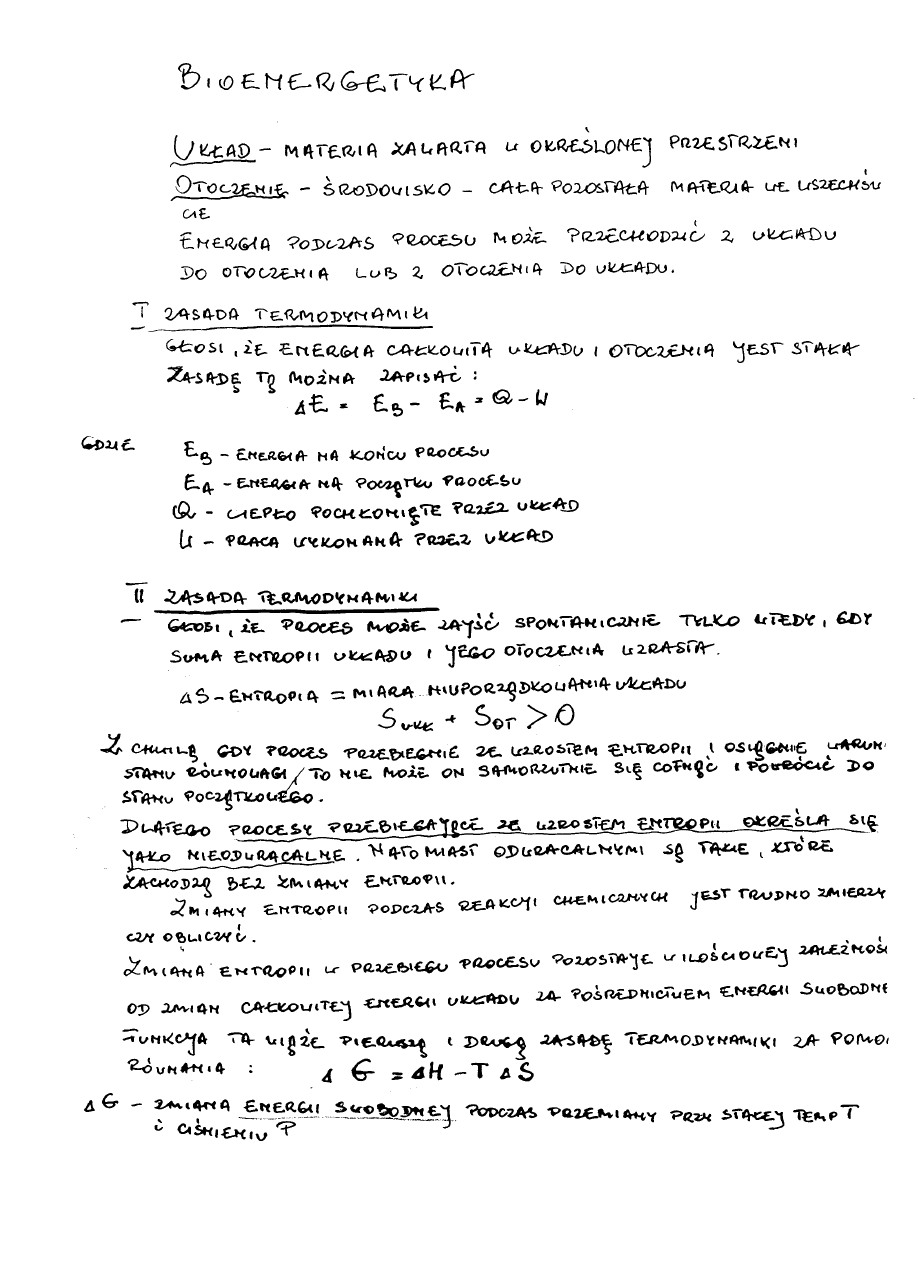 BIOENERGETYKA
UKŁAD – MATERIA ZAWARTA W OKREŚLONEJ PRZESTRZENI
OTOCZENIE – ŚRODOWISKO – CAŁA POZOSTAŁA MATERIA WE WSZECHŚW
CIE
ENERGIA PODCZAS PROCESU MOŻE PRZECHODZIĆ Z UKŁADU
DO OTOCZENIA LUB Z OTOCZENIA DO UKŁADU.
I ZASADA TERMODYNAMIKI
GŁOSI, ŻE ENERGIA CAŁKOWITA UKŁADU I OTOCZENIA JEST STAŁA
ZASADĘ TĘ MOŻNA ZAPISAĆ :
ΔE = E_B – E_A = Q – W
GDZIE E_B – ENERGIA NA KOŃCU PROCESU
E_A – ENERGIA NA POCZĄTKU PROCESU
Q – CIEPŁO POCHŁONIĘTE PRZEZ UKŁAD
W – PRACA WYKONANA PRZEZ UKŁAD
II ZASADA TERMODYNAMIKI
GŁOSI, ŻE PROCES MOŻE ZAJŚĆ SPONTANICZNIE TYLKO WTEDY, GDY
SUMA ENTROPII UKŁADU I JEGO OTOCZENIA WZRASTA.
ΔS – ENTROPIA = MIARA NIUPORZĄDKOWANIA UKŁADU
S_UKŁ + S_OT > 0
Z CHWILĄ GDY PROCES PRZEBIEGNIE ZE WZROSTEM ENTROPII I OSIĄGNIE WARUN
STANU RÓWNOWAGI, TO NIE MOŻE ON SAMORZUTNIE SIĘ COFNĄĆ I POWRÓCIĆ DO
STANU POCZĄTKOWEGO.
DLATEGO PROCESY PRZEBIEGAJĄCE ZE WZROSTEM ENTROPII OKREŚLA SIĘ
JAKO NIEODWRACALNE. NATOMIAST ODWRACALNYMI SĄ TAKIE, KTÓRE
ZACHODZĄ BEZ ZMIANY ENTROPII.
ZMIANY ENTROPII PODCZAS REAKCJI CHEMICZNYCH JEST TRUDNO ZMIERZY
CZY OBLICZYĆ.
ZMIANA ENTROPII W PRZEBIEGU PROCESU POZOSTAJE W ILOŚCIOWEJ ZALEŻNOŚC
OD ZMIAN CAŁKOWITEJ ENERGII UKŁADU ZA POŚREDNICTWEM ENERGII SWOBODNE
FUNKCJA TA WIĄŻE PIERWSZĄ I DRUGĄ ZASADĘ TERMODYNAMIKI ZA POMO
RÓWNANIA : ΔG = ΔH – T ΔS
ΔG – ZMIANA ENERGII SWOBODNEJ PODCZAS PRZEMIANY PRZY STAŁEJ TEMP T
I CIŚNIENIU P